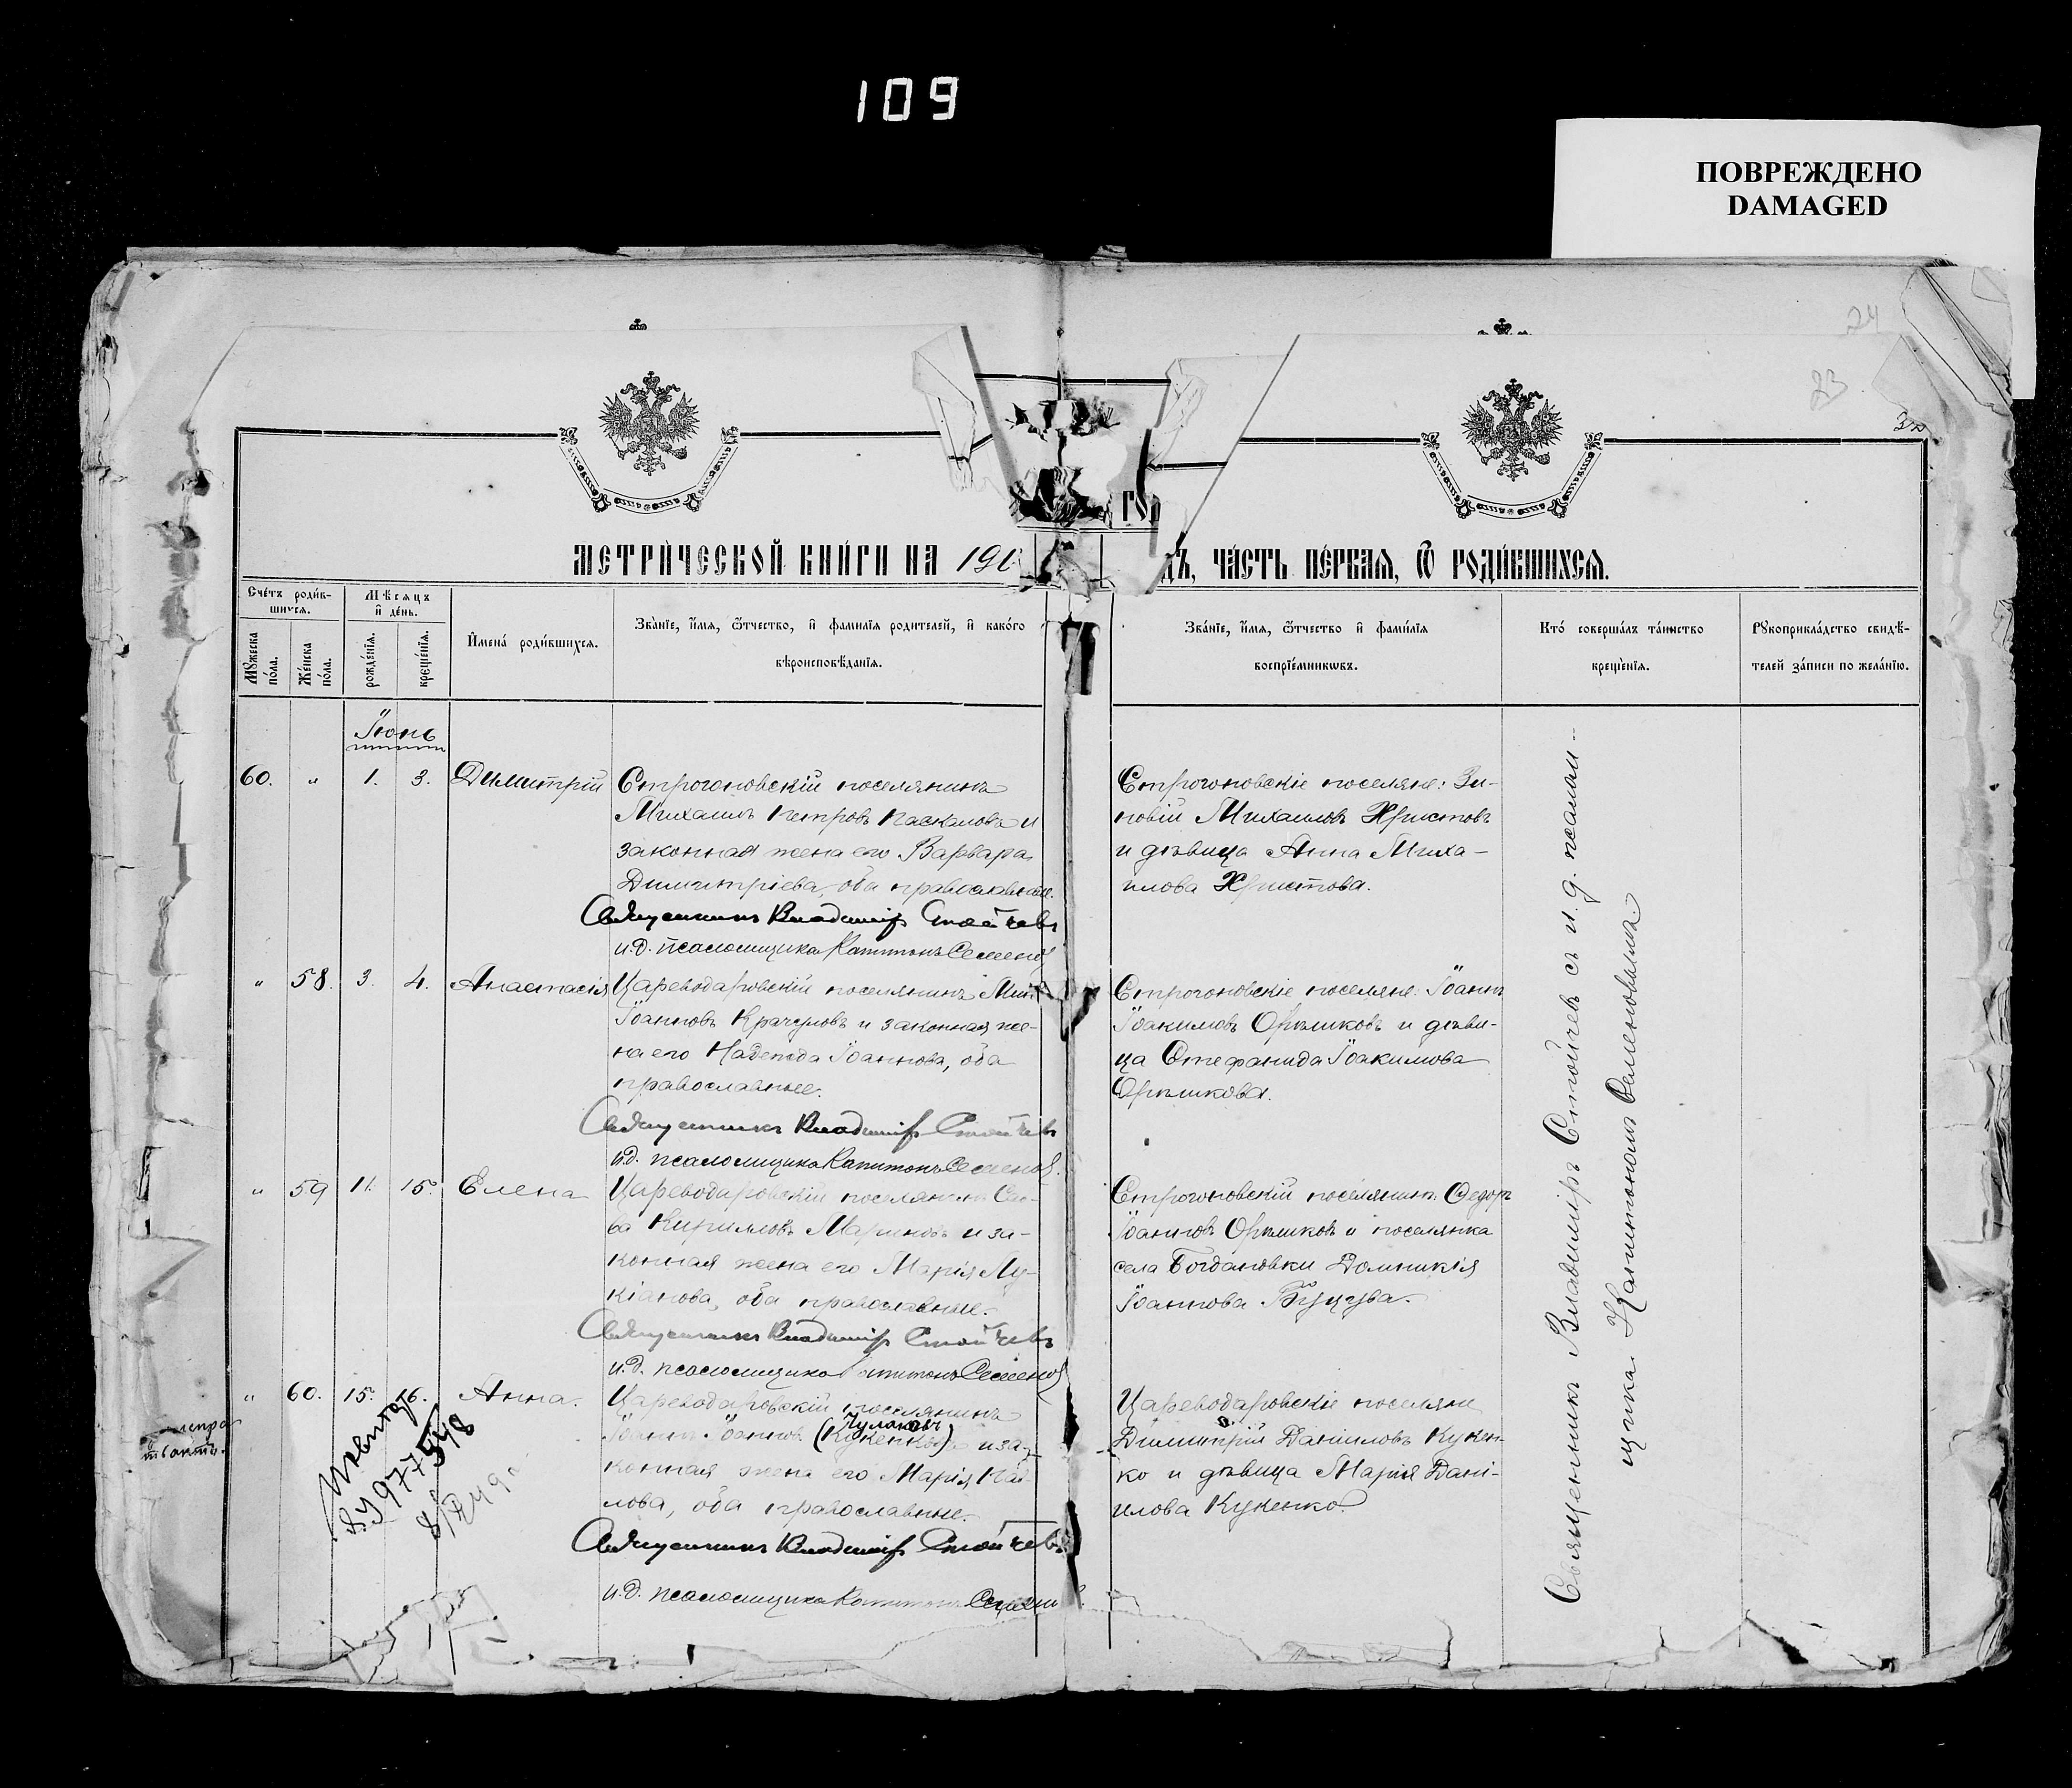 109
ПОВРЕЖДЕНО
DAMAGED
24
23
МЕТРИЧЕСКОЙ КНИГИ НА 190
ГОДЪ, ЧАСТЬ ПЕРВАЯ, Ѿ РОДИВШИХСЯ.
Счетъ родив-
шихся.
Мѣсяцъ
и день.
Мужеска пола.
Женска пола.
рожденія.
крещенія.
Имена родившихся.
Званіе, имя, ѿтчество, и фамилія родителей, и какого
вѣроисповѣданія.
Званіе, имя, ѿтчество и фамилія
воспріемниковъ.
Кто совершалъ таинство
крещенія.
Рукоприкладство свидѣ-
телей записи по желанію.
Іюнь
60. " 1. 3. Димитрій
Строгоновскій поселянинъ
Михаилъ Петровъ Паскаловъ и
законная жена его Варвара
Димитріева, оба православные.
Священникъ Владиміръ Стойчевъ
и.д. псаломщика Капитонъ Семенов
Строгоновскіе поселяне: Зи-
новій Михаиловъ Христовъ
и дѣвица Анна Миха-
илова Христова.
" 58. 3. 4. Анастасія
Цареводаровскій поселянинъ
Іоанновъ Крачуновъ и законная же-
на его Надежда Іоаннова, оба
православные.
Священникъ Владиміръ Стойчевъ
и.д. псаломщика Капитонъ Семенов.
Строгоновскіе поселяне: Іоаннъ
Іоакимовъ Орѣшковъ и дѣви-
ца Стефанида Іоакимова
Орѣшкова.
" 59 11. 15. Елена
Цареводаровскій поселянинъ Сав-
ва Кирилловъ Мариновъ и за-
конная жена его Марія Лу-
кіанова, оба православные.
Священникъ Владиміръ Стойчевъ
и.д. псаломщика Капитонъ Семенов
Строгоновскій поселянинъ Ѳедоръ
Іоанновъ Орѣшковъ и поселянка
села Богдановки Домникія
Іоаннова
" 60. 15. 16. Анна.
Цареводаровскій поселянинъ
Іоаннъ Іоанновъ (Кукенко) и за-
конная жена его Марія
лова, оба православные.
Священникъ Владиміръ Стойчевъ
и.д. псаломщика Капитонъ
Цареводаровскіе поселяне
Димитрій Даніиловъ Кукен-
ко и дѣвица Марія Дані-
илова Кукенко.
Священникъ Владиміръ Стойчевъ съ и. д. псалом-
щика Капитономъ Семеновымъ.